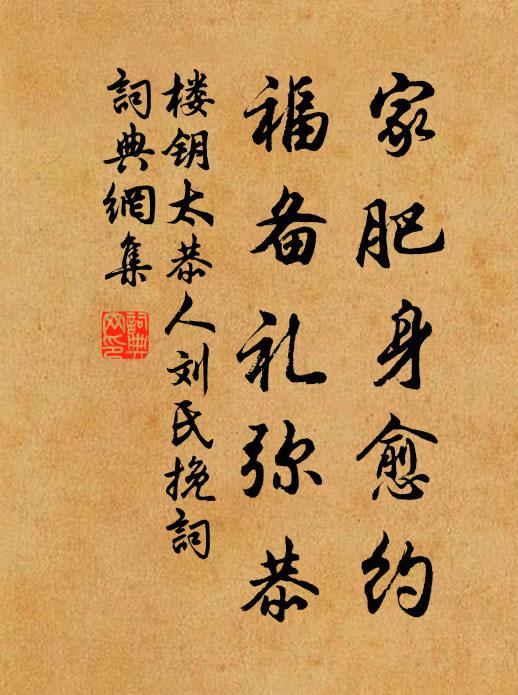 家肥身愈约
福备礼弥恭
楼钥太恭人刘氏挽詞
詞典網集
詞典網印